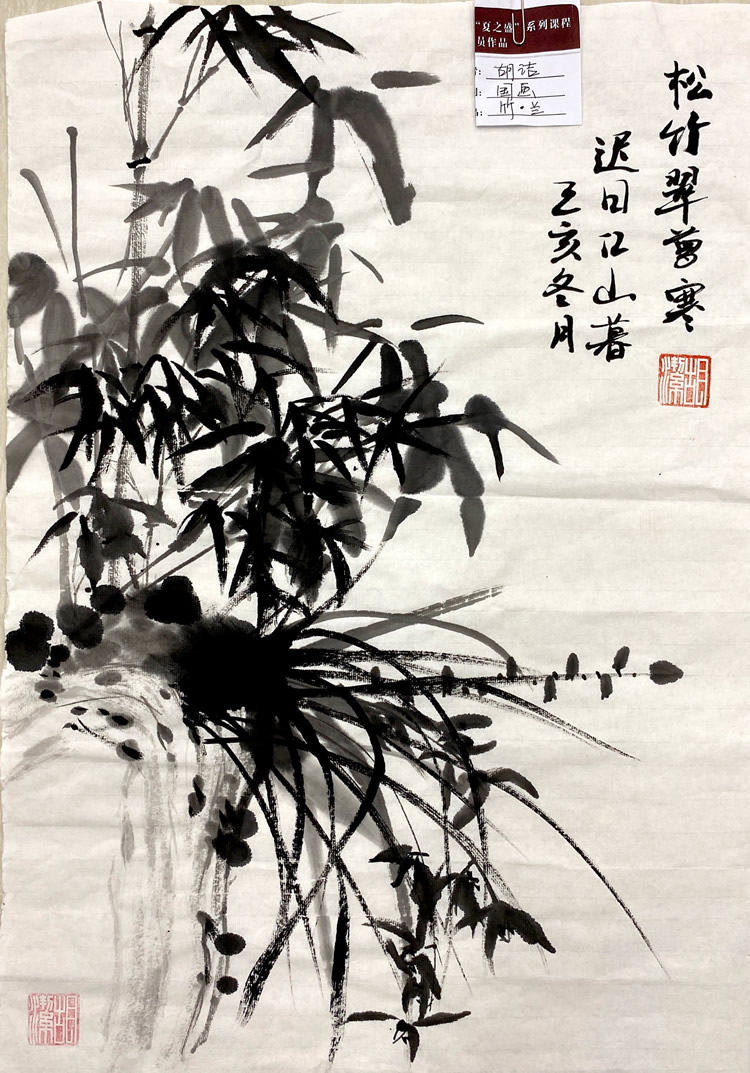 "夏之盛"系列课程
员作品
胡洁
国画
竹·兰
松竹翠萝寒
迟日江山暮
己亥冬月
胡潔
胡潔